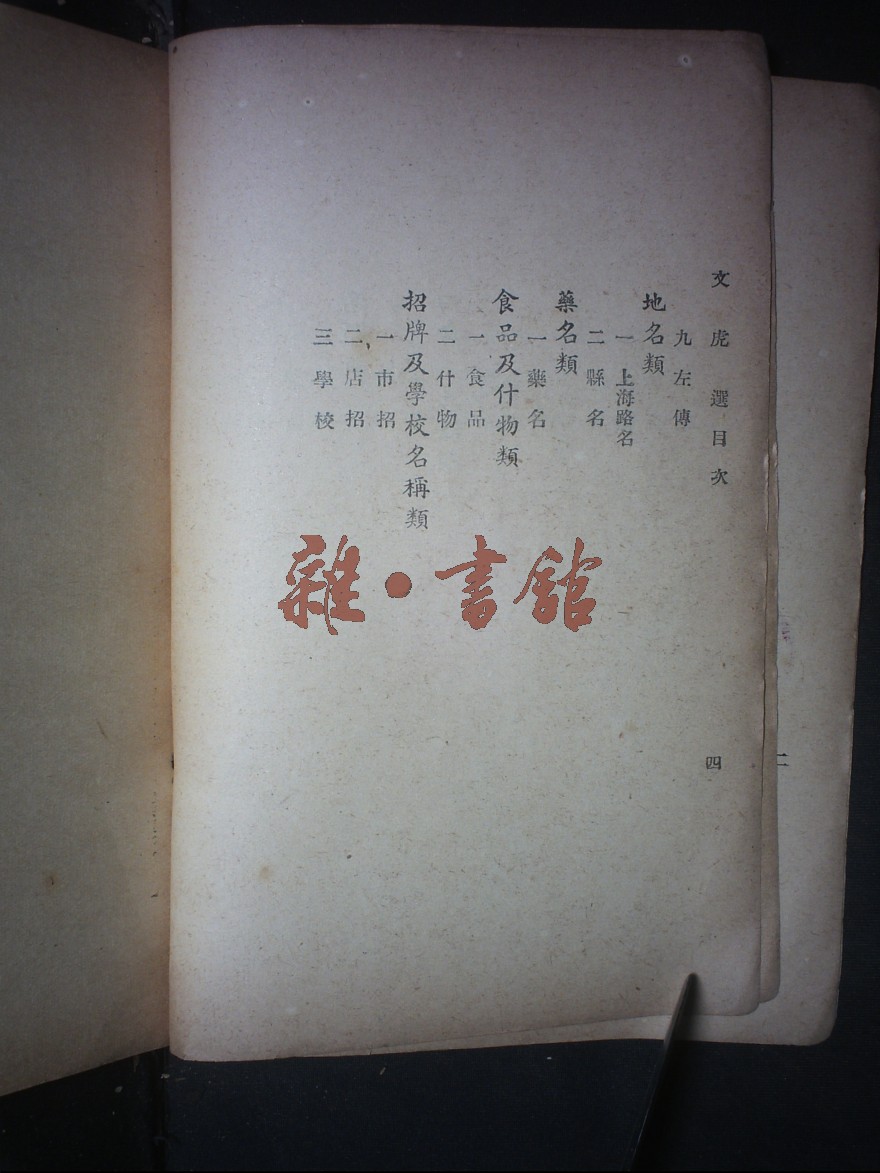 文虎選目次
九 左傳
地名類
一 上海路名
二 縣名
藥名類
一 藥名
食品及什物類
一 食品
二 什物
招牌及學校名稱類
一 市招
二 店招
三 學校
四
二
雜·書館